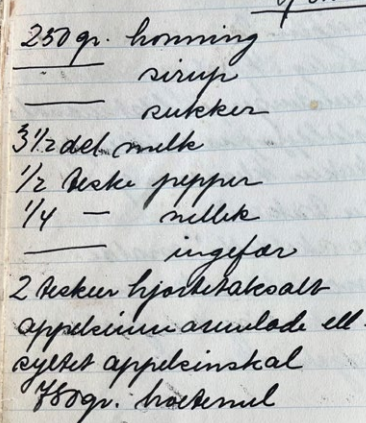 250 gr. honning
— sirup
— sukker
3 1/2 del melk
1/2 teske pepper
1/4 — nellik
— ingefær
2 teskeer hjortetaksalt
appelsinmarmelade ell.
syltet appelsinskal
750 gr. hvetemel